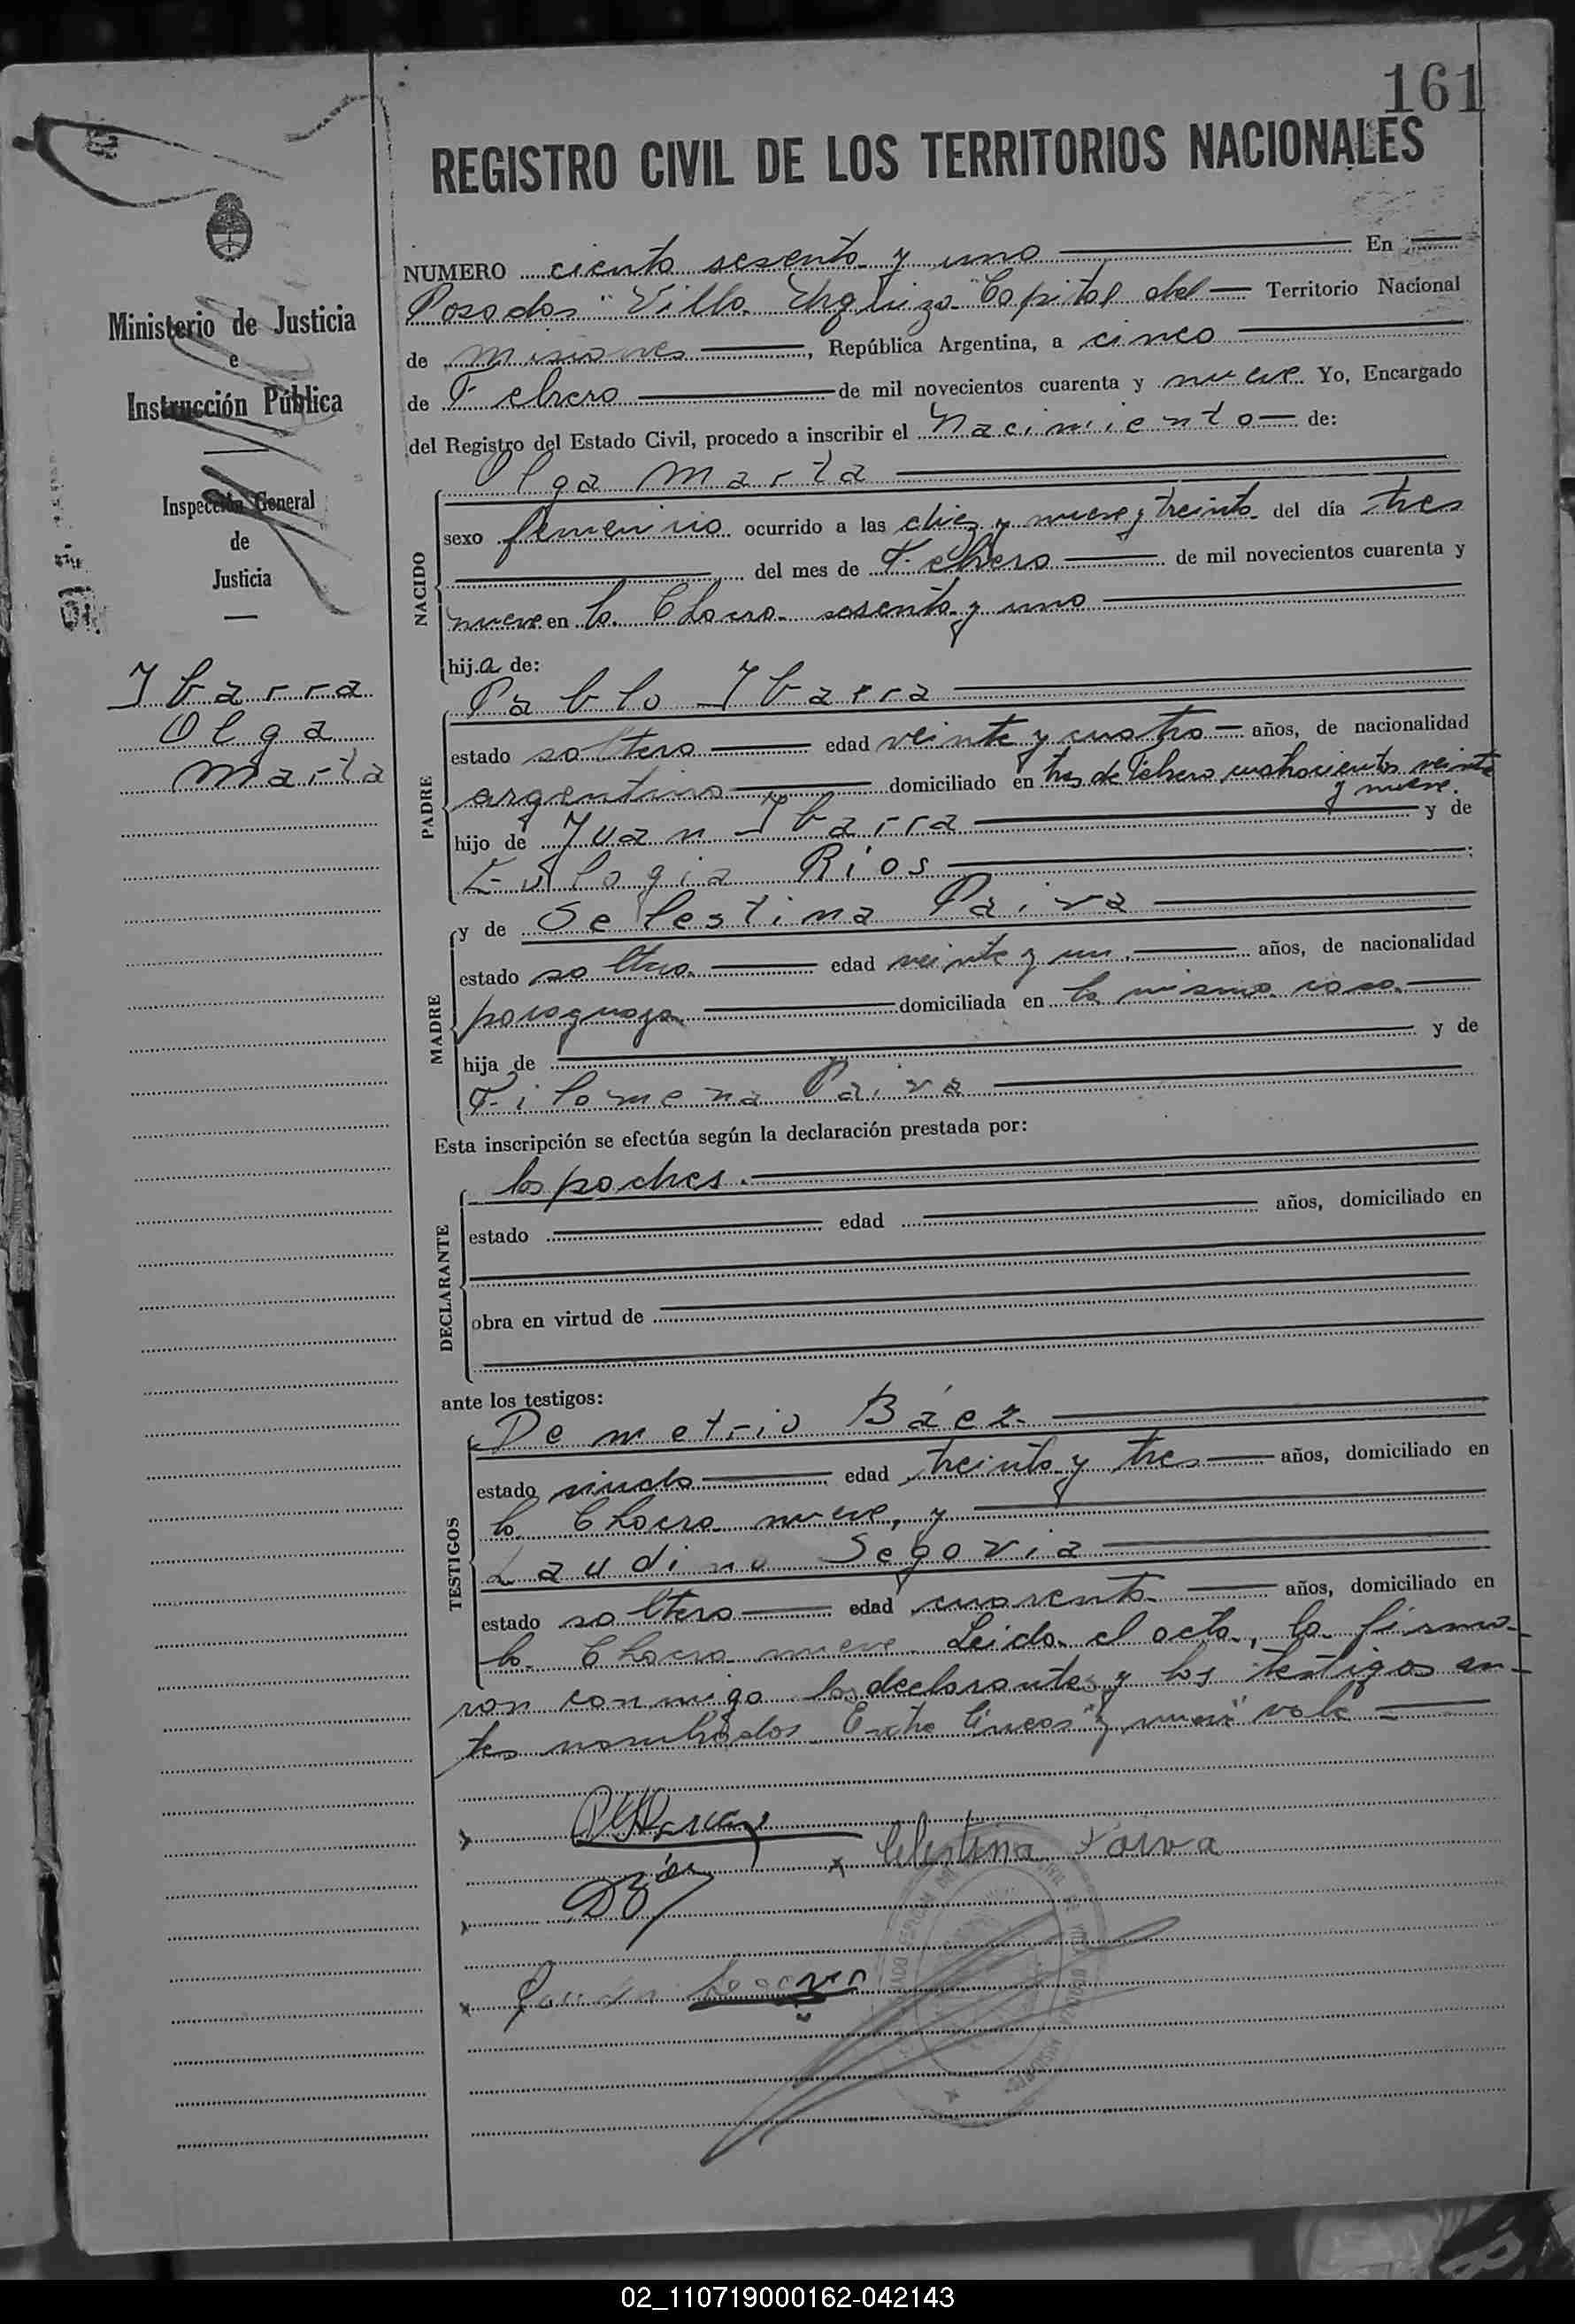 161
REGISTRO CIVIL DE LOS TERRITORIOS NACIONALES
Ministerio de Justicia
e
Instrucción Pública
Inspección General
de
Justicia
Ibarra
Olga
Marta
NUMERO ciento sesenta y uno En
Posadas "Villa Urquiza" Capital del Territorio Nacional
de Misiones, República Argentina, a cinco
de Febrero de mil novecientos cuarenta y nueve Yo, Encargado
del Registro del Estado Civil, procedo a inscribir el Nacimiento de:
Olga Marta
NACIDO
sexo femenino ocurrido a las diez y nueve y treinta del día tres
del mes de Febrero de mil novecientos cuarenta y
nueve en la Chacra sesenta y uno
hija de:
Pablo Ibarra
PADRE
estado soltero edad veinte y cuatro años, de nacionalidad
argentino domiciliado en tres de Febrero cuatrocientos veinte
y nueve.
hijo de Juan Ibarra y de
Eulogia Ríos
MADRE
y de Selestina Paiva
estado soltera edad veinte y un años, de nacionalidad
paraguaya domiciliada en la misma casa
hija de y de
Filomena Paiva
Esta inscripción se efectúa según la declaración prestada por:
los padres.
DECLARANTE
estado edad años, domiciliado en
obra en virtud de
ante los testigos:
TESTIGOS
Demetrio Báez
estado viudo edad treinta y tres años, domiciliado en
la Chacra nueve, y
Laudino Segovia
estado soltero edad cuarenta años, domiciliado en
la Chacra nueve. Leida el acta, la firma-
ron conmigo los declarantes y los testigos an-
tes nombrados. Entre líneas "y nueve" vale =
x Celestina Paiva
02_110719000162-042143